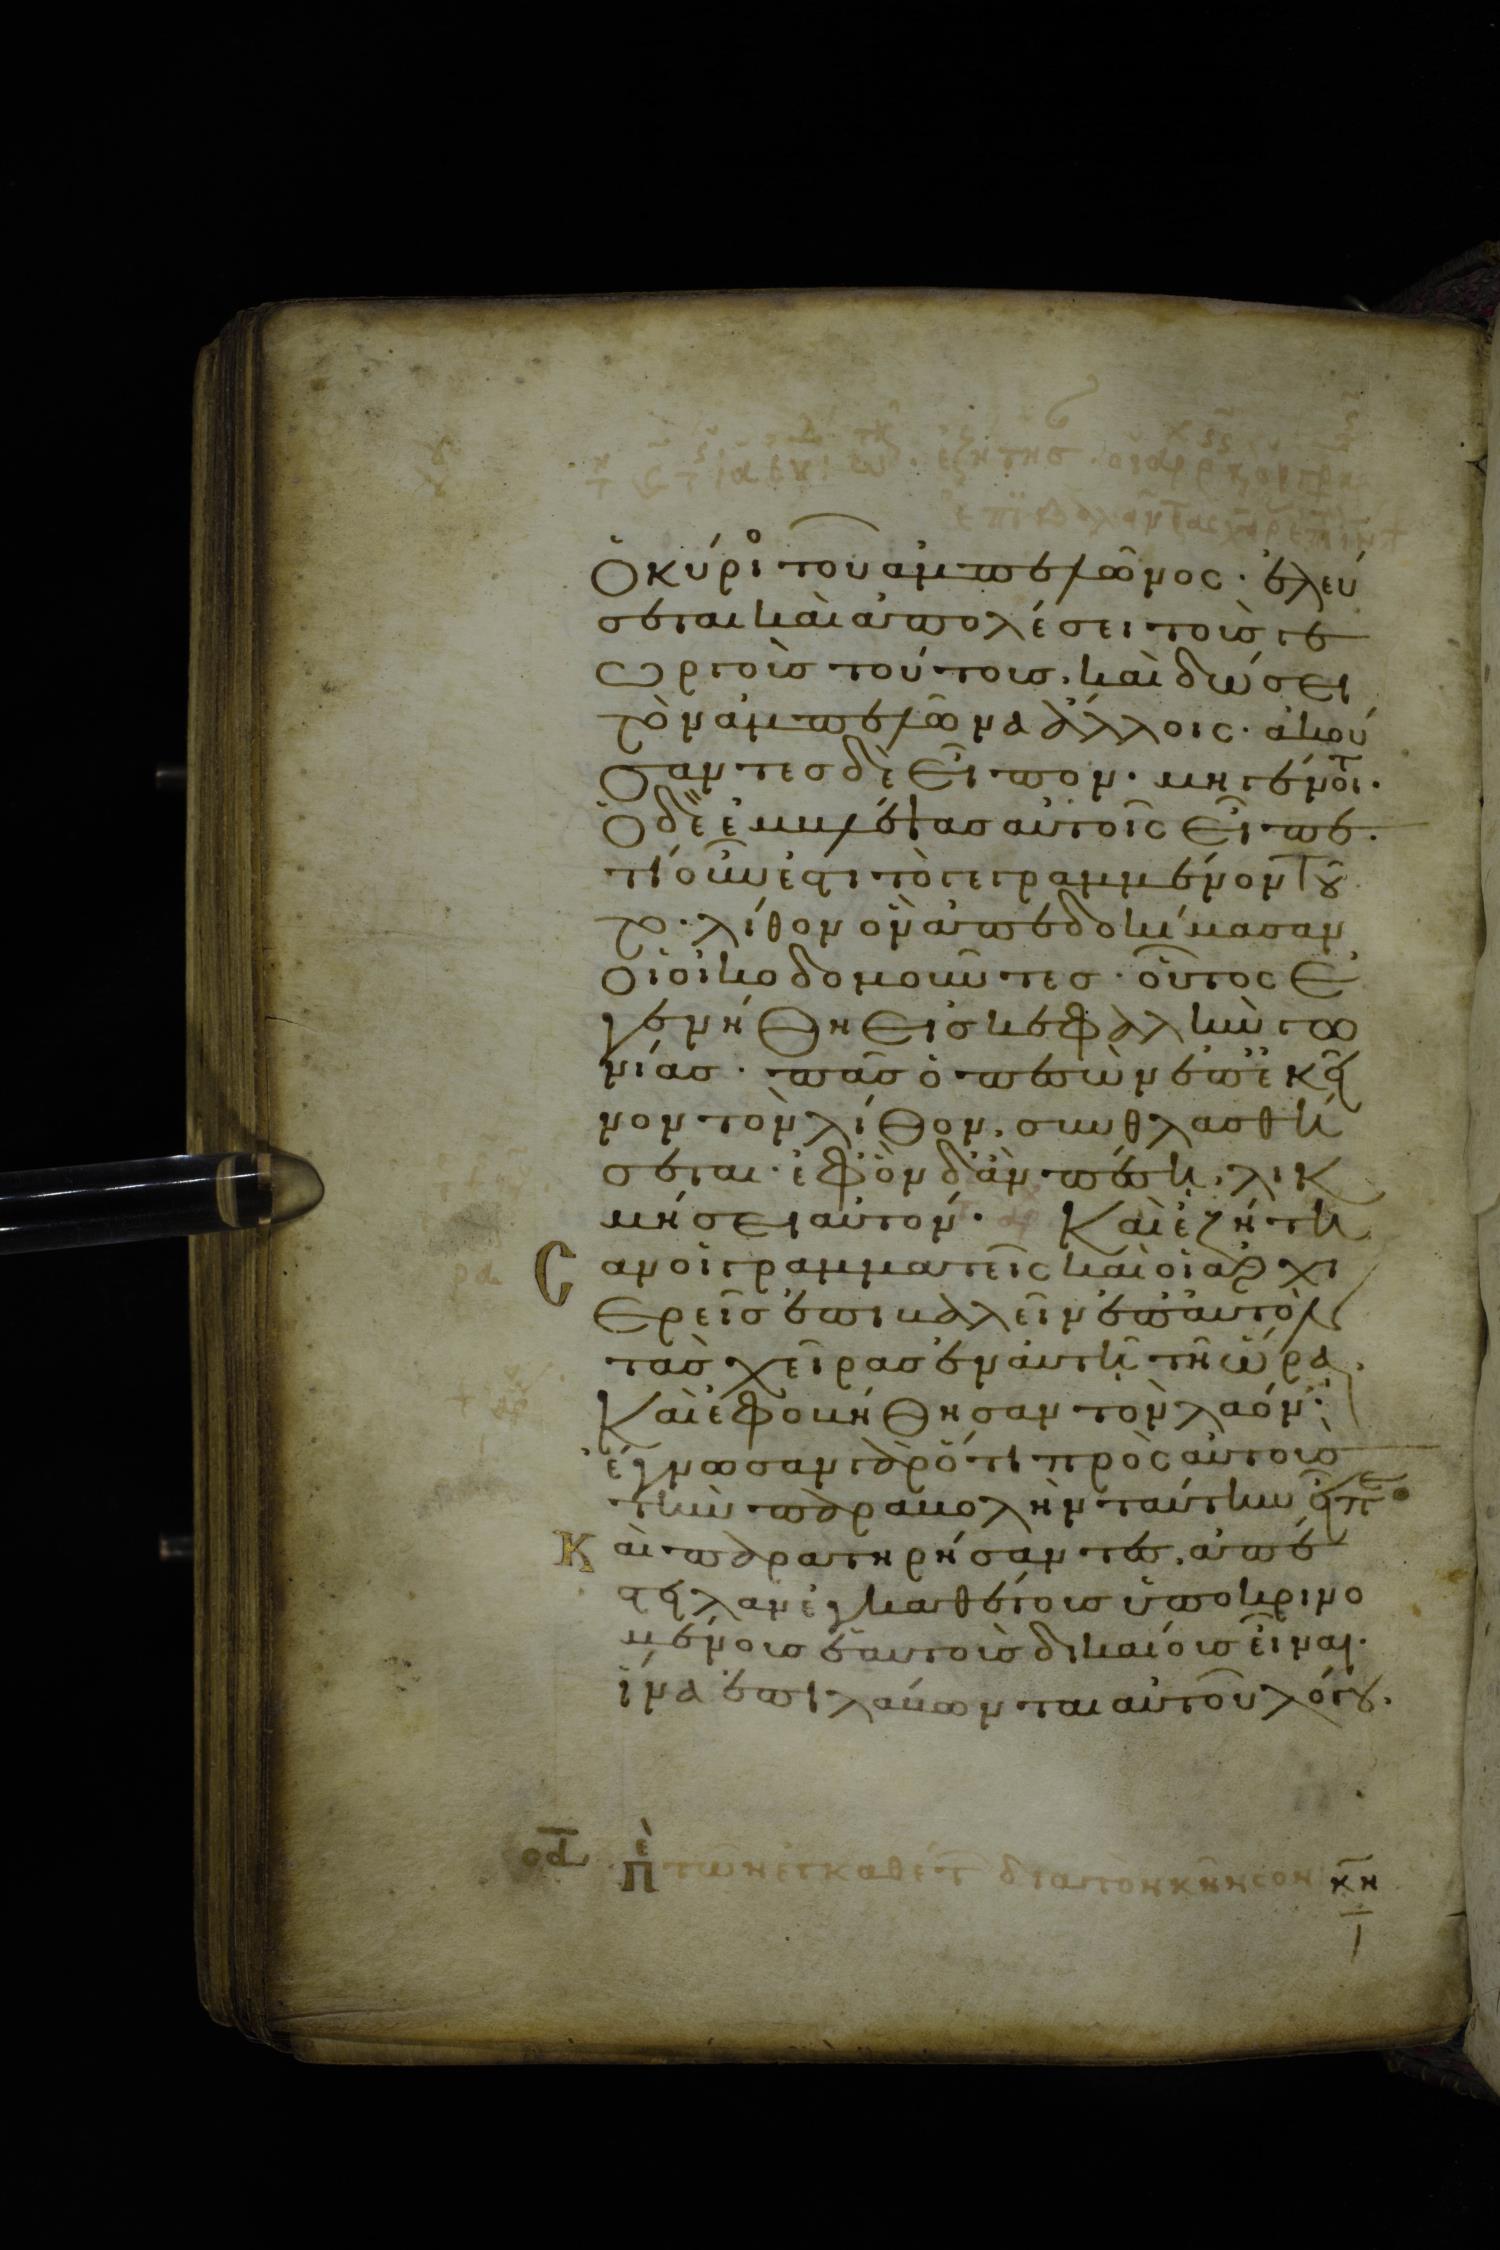 ὁ κύριος τοῦ ἀμπελῶνος· ἐλεύ
σεται καὶ ἀπολέσει τοὺς γε
ωργοὺς τούτους, καὶ δώσει
τὸν ἀμπελῶνα ἄλλοις· ἀκού
σαντες δὲ εἶπον· μὴ γένοιτ·
ὁ δὲ ἐμβλέψας αὐτοῖς εἶπε·
τί οὖν ἐστι τὸ γεγραμμένον τοῦ
το· λίθον ὃν ἀπεδοκίμασαν
οἱ οἰκοδομοῦντες· οὗτος ἐ
γενήθη εἰς κεφαλὴν γω
νίας· πᾶς ὁ πεσὼν ἐπ' ἐκεῖ
νον τὸν λίθον, συνθλασθή
σεται· ἐφ' ὃν δ' ἂν πέσῃ, λικ
μήσει αὐτόν· Καὶ ἐζήτη
σαν οἱ γραμματεῖς καὶ οἱ ἀρχι
ερεῖς ἐπιβαλεῖν ἐπ' αὐτὸν
τὰς χεῖρας ἐν αὐτῇ τῇ ὥρᾳ.
Καὶ ἐφοβήθησαν τὸν λαόν·
ἔγνωσαν γὰρ ὅτι πρὸς αὐτοὺς
τὴν παραβολὴν ταύτην εἶπε
Καὶ παρατηρήσαντες, ἀπέ
στειλαν ἐγκαθέτους ὑποκρινο
μένους ἑαυτοὺς δικαίους εἶναι·
ἵνα ἐπιλάβωνται αὐτοῦ λόγου.
Πὲ τῶν ἐγκαθέτ διὰ τὸν κῆνσον κη